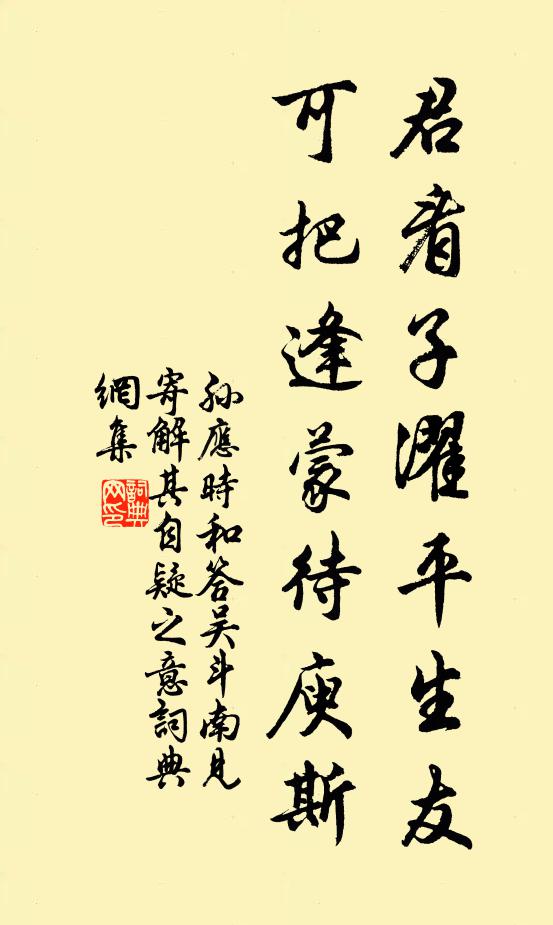 君看子濯平生友
可把逢蒙待庾斯
孫應時和答吳斗南見
寄解其自疑之意詞典
網集
詞典
网印